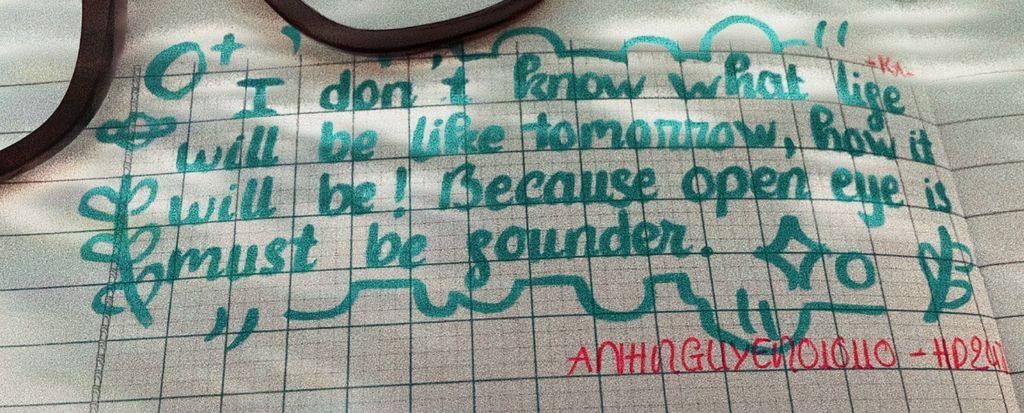 -KA-
I don't know what life
will be like tomorrow, how it
will be! Because open eye is
must be sounder.
ANHNGUYEN010110 - HD247